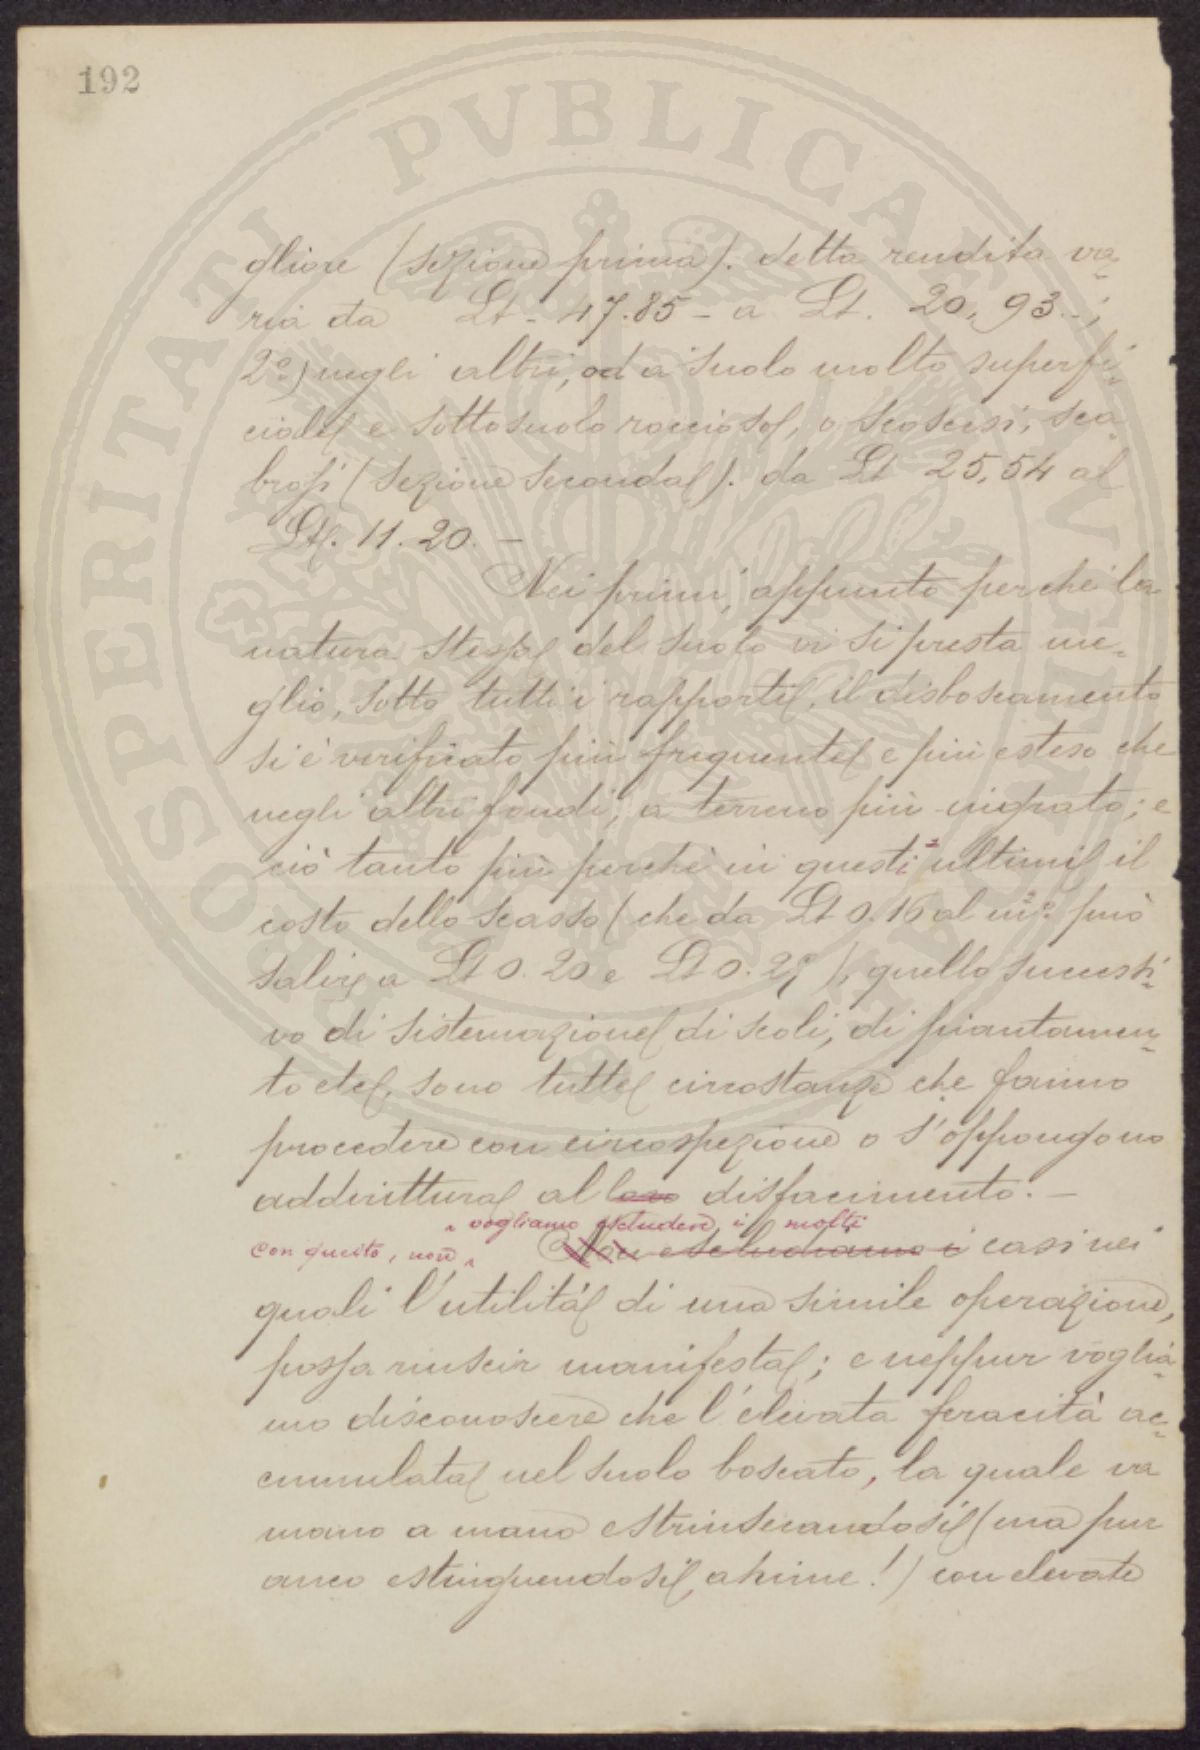 192
gliore (sezione prima). detta rendita va-
ria da Lt. 47.85 - a Lt. 20,93.-;
2°) negli altri, od a suolo molto superfi-
ciale e sottosuolo roccioso, o scoscesi, sca-
brosi (sezione seconda). da Lt 25,54 a
Lt. 11.20. -
Nei primi, appunto perchè la
natura stessa del suolo vi si presta me-
glio, sotto tutti i rapporti, il disboscamento
si è verificato più frequente e più esteso che
negli altri fondi, a terreno più ingrato; e
ciò tanto più perchè in questi ultimi il
costo dello scasso (che da Lt 0.16 al m²° può
salire a Lt 0.20 e Lt 0.25), quello successi-
vo di sistemazione di scoli, di piantamen-
to etc, sono tutte circostanze che fanno
procedere con circospezione o s'oppongono
addirittura al loro disfacimento. -
vogliamo escludere, i molti
con questo, non Non escludiamo i casi nei
quali l'utilità di una simile operazione,
possa riuscir manifesta; e neppur voglia-
mo disconoscere che l'elevata feracità ac-
cumulata nel suolo boscato, la quale va
mano a mano estrinsecandosi (ma pur
anco estinguendosi, ahime!) con elevate
PROSPERITATI PVBLICAE